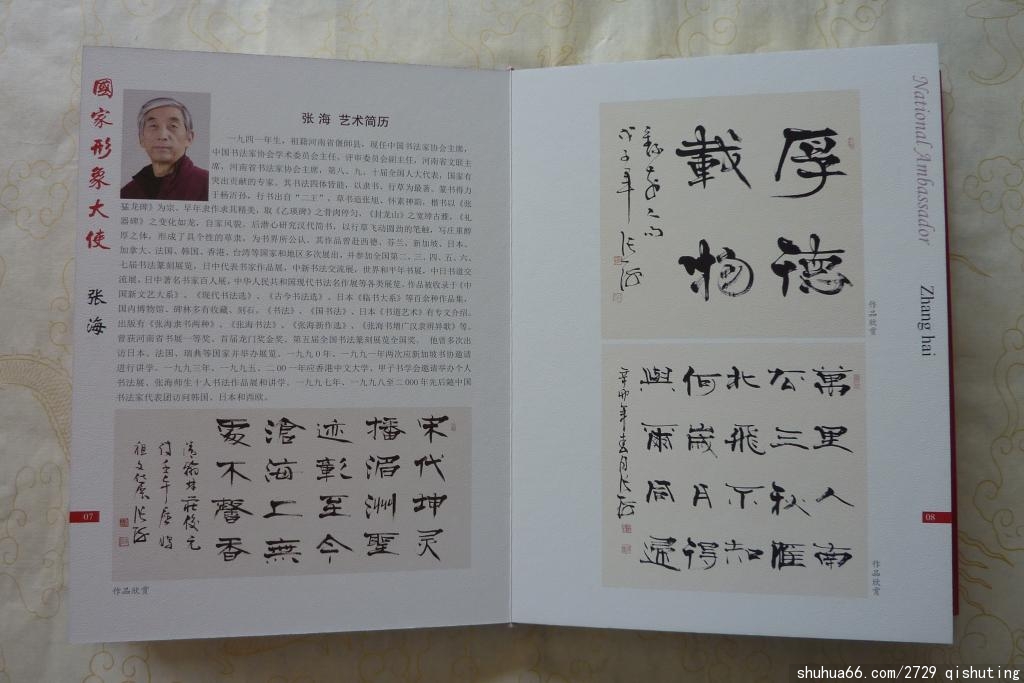 國家形象大使
张海
张 海 艺术简历
一九四一年生，祖籍河南省偃师县，现任中国书法家协会主席，
中国书法家协会学术委员会主任、评审委员会副主任，河南省文联主
席，河南省书法家协会主席，第八、九、十届全国人大代表，国家有
突出贡献的专家。其书法四体皆能，以隶书、行草为最著。篆书得力
于杨沂孙，行书出自“二王”，草书追张旭、怀素神韵，楷书以《张
猛龙碑》为宗。早年隶作求其精美，取《乙瑛碑》之骨肉停匀，《封龙山》之宽绰古雅，《礼
器碑》之变化如龙，自家风貌。后潜心研究汉代简书，以行草飞动圆劲的笔触，写庄重醇
厚之体，形成了具个性的草隶，为书界所公认。其作品曾赴西德、芬兰、新加坡、日本、
加拿大、法国、韩国、香港、台湾等国家和地区多次展出，并参加全国第二、三、四、五、六、
七届书法篆刻展览，日中代表书家作品展，中新书法交流展，世界和平年书展，中日书道交
流展，日中著名书家百人展，中华人民共和国现代书法名作展等各类展览。作品被收录于《中
国新文艺大系》、《现代书法选》、《古今书法选》、日本《临书大系》等百余种作品集，
国内博物馆、碑林多有收藏、刻石，《书法》、《国书法》、日本《书道艺术》有专文介绍。
出版有《张海隶书两种》、《张海书法》、《张海新作选》、《张海书增广汉隶辨异歌》等。
曾获河南省书展一等奖、首届龙门奖金奖、第五届全国书法篆刻展览全国奖。 他曾多次出
访日本、法国、瑞典等国家并举办展览。一九九0年、一九九一年两次应新加坡书协邀请
进行讲学。一九九三年、一九九五、二00一年应香港中文大学、甲子书学会邀请举办个人
书法展、张海师生十人书法作品展和讲学。一九九七年、一九九八至二000年先后随中国
书法家代表团访问韩国、日本和西欧。
宋代坤灵
播湄洲聖
迹彰至今
滄海上無
作品欣赏
07
厚德
載物
戊子年
张海
作品欣赏
萬里人南
公三秋雁
北飛不知
何歲月得
與爾同還
辛卯年
张海
作品欣赏
National Ambassador
Zhang hai
08
shuhua66.com/2729 qishuting